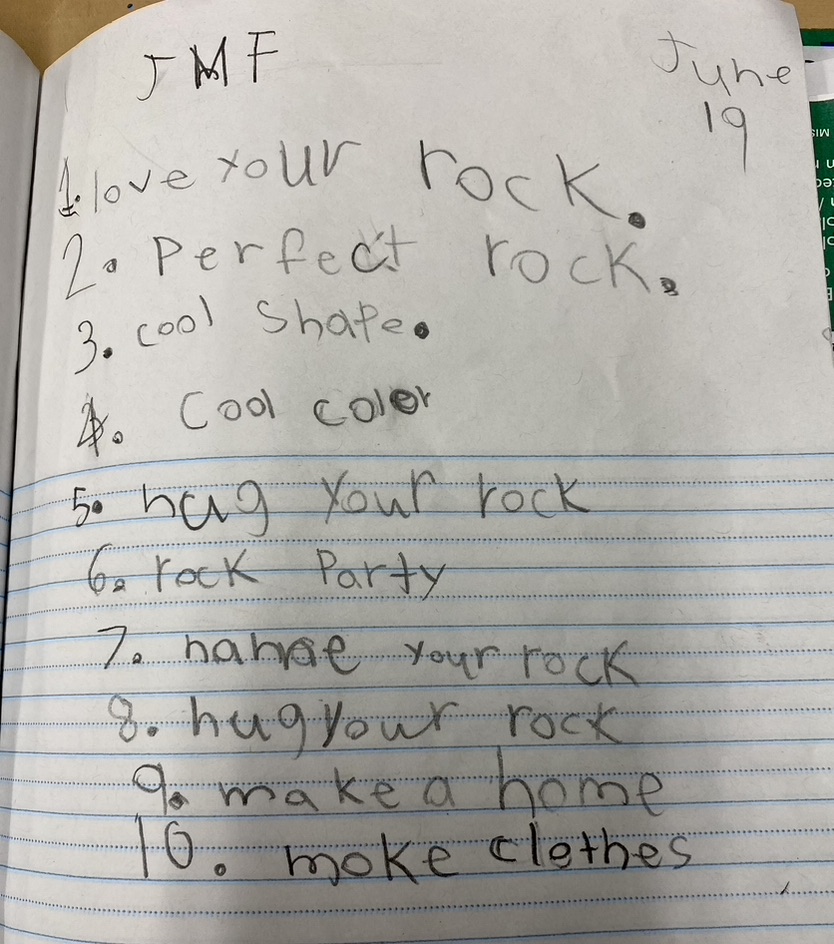 JMF
June
19
1. love your rock.
2. Perfect rock.
3. cool shape.
4. Cool color
5. hug your rock
6. rock Party
7. name your rock
8. hug your rock
9. make a home
10. make clothes